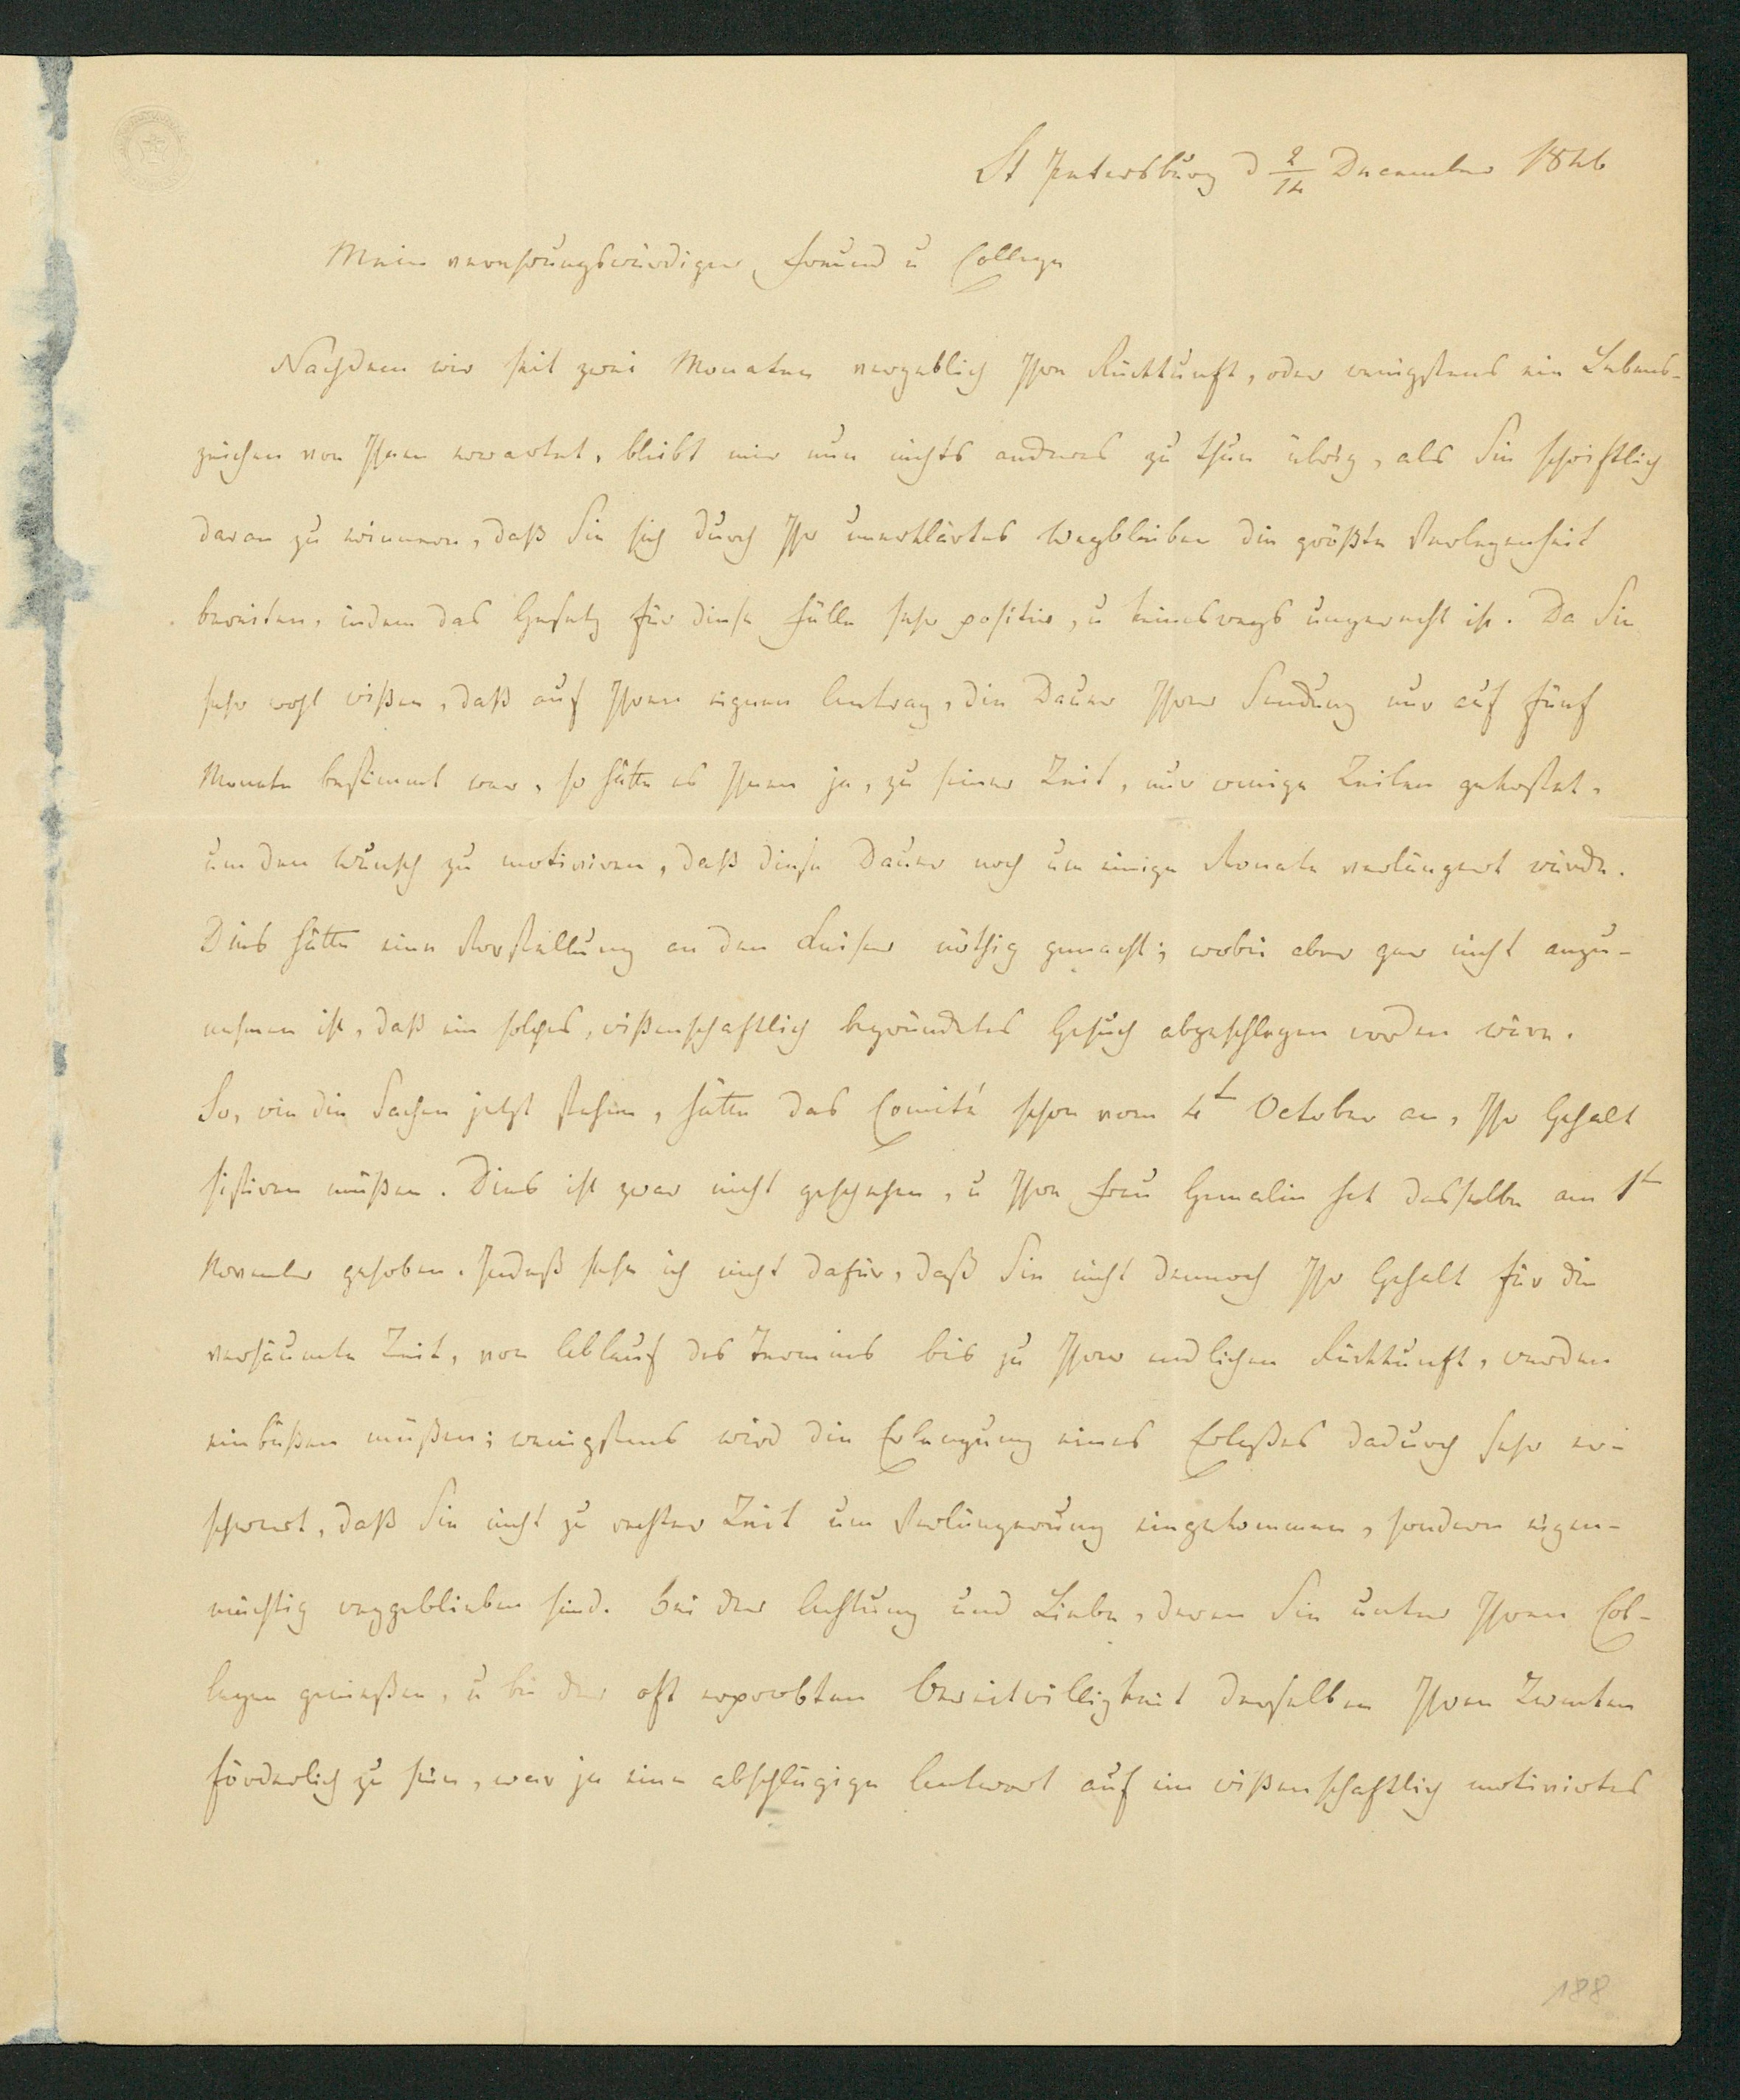 St Petersburg d 2/14 December 1846
Mein verehrungswürdiger Freund u College
Nachdem wir seit zwei Monaten vergeblich Ihre Rückkunft, oder wenigstens ein Lebens-
zeichen von Ihnen erwartet, bleibt mir nun nichts anderes zu thun übrig, als Sie schriftlich
daran zu erinnern, daß Sie sich durch Ihr unerklärtes Wegbleiben die größte Verlegenheit
bereiten, indem das Gesetz für diese Fälle sehr positiv, u keineswegs ungerecht ist. Da Sie
sehr wohl wißen, daß auf Ihren eignen Antrag, die Dauer Ihrer Sendung nur auf fünf
Monate bestimmt war, so hätte es Ihnen ja, zu seiner Zeit, nur wenige Zeilen gekostet,
um den Wunsch zu motiviren, daß diese Dauer noch um einige Monate verlängert würde.
Dies hätte eine Vorstellung an den Kaiser nöthig gemacht; wobei aber gar nicht anzu-
nehmen ist, daß ein solches, wißenschaftlich begründetes Gesuch abgeschlagen worden wäre.
So, wie die Sachen jetzt stehen, hätte das Comité schon vom 4t October an, Ihr Gehalt
sistiren müßen. Dies ist zwar nicht geschehen, u Ihre Frau Gemalin hat dasselbe am 1t
November gehoben. Indeß stehe ich nicht dafür, daß Sie nicht dennoch Ihr Gehalt für die
versäumte Zeit, von Ablauf des Termins bis zu Ihrer endlichen Rückkunft, werden
einbüßen müßen; wenigstens wird die Erlangung eines Erlaßes dadurch sehr er-
schwert, daß Sie nicht zu rechter Zeit um Verlängerung eingekommen, sondern eigen-
mächtig weggeblieben sind. Bei der Achtung und Liebe, deren Sie unter Ihren Col-
legen genießen, u bei der oft erprobten Bereitwilligkeit derselben Ihren Zwecken
förderlich zu sein, war ja eine abschlägige Antwort auf ein wißenschaftlich motivirtes
188